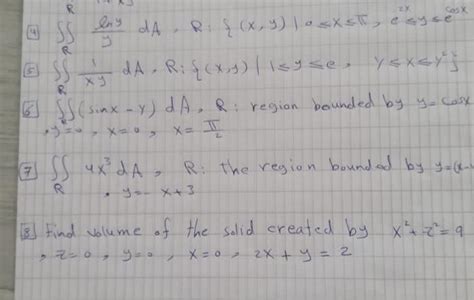 [4] ∬_R lny/y dA , R: {(x,y) | 0≤x≤π , e^2x ≤y≤ e^cosx
[5] ∬_R 1/xy dA , R: {(x,y) | 1≤y≤e , y≤x≤y²}
[6] ∬_R (sinx - y) dA , R: region bounded by y=cosx
, y=0 , x=0 , x= π/2
[7] ∬_R 4x³ dA , R: The region bounded by y=(x-
, y=-x+3
[8] Find volume of the solid created by x²+z²=9
, z=0 , y=0 , x=0 , 2x+y=2